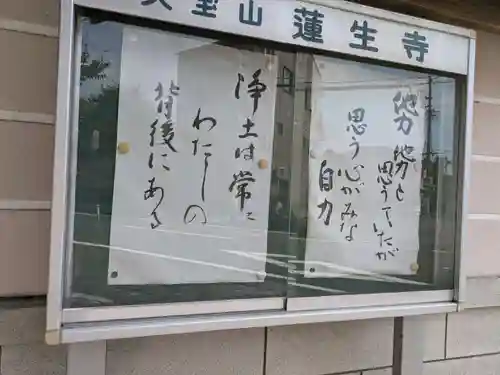 宝山 蓮生寺
他力他力と
思うていたが
思う心がみな
自力
浄土は常に
わたしの
背後にある